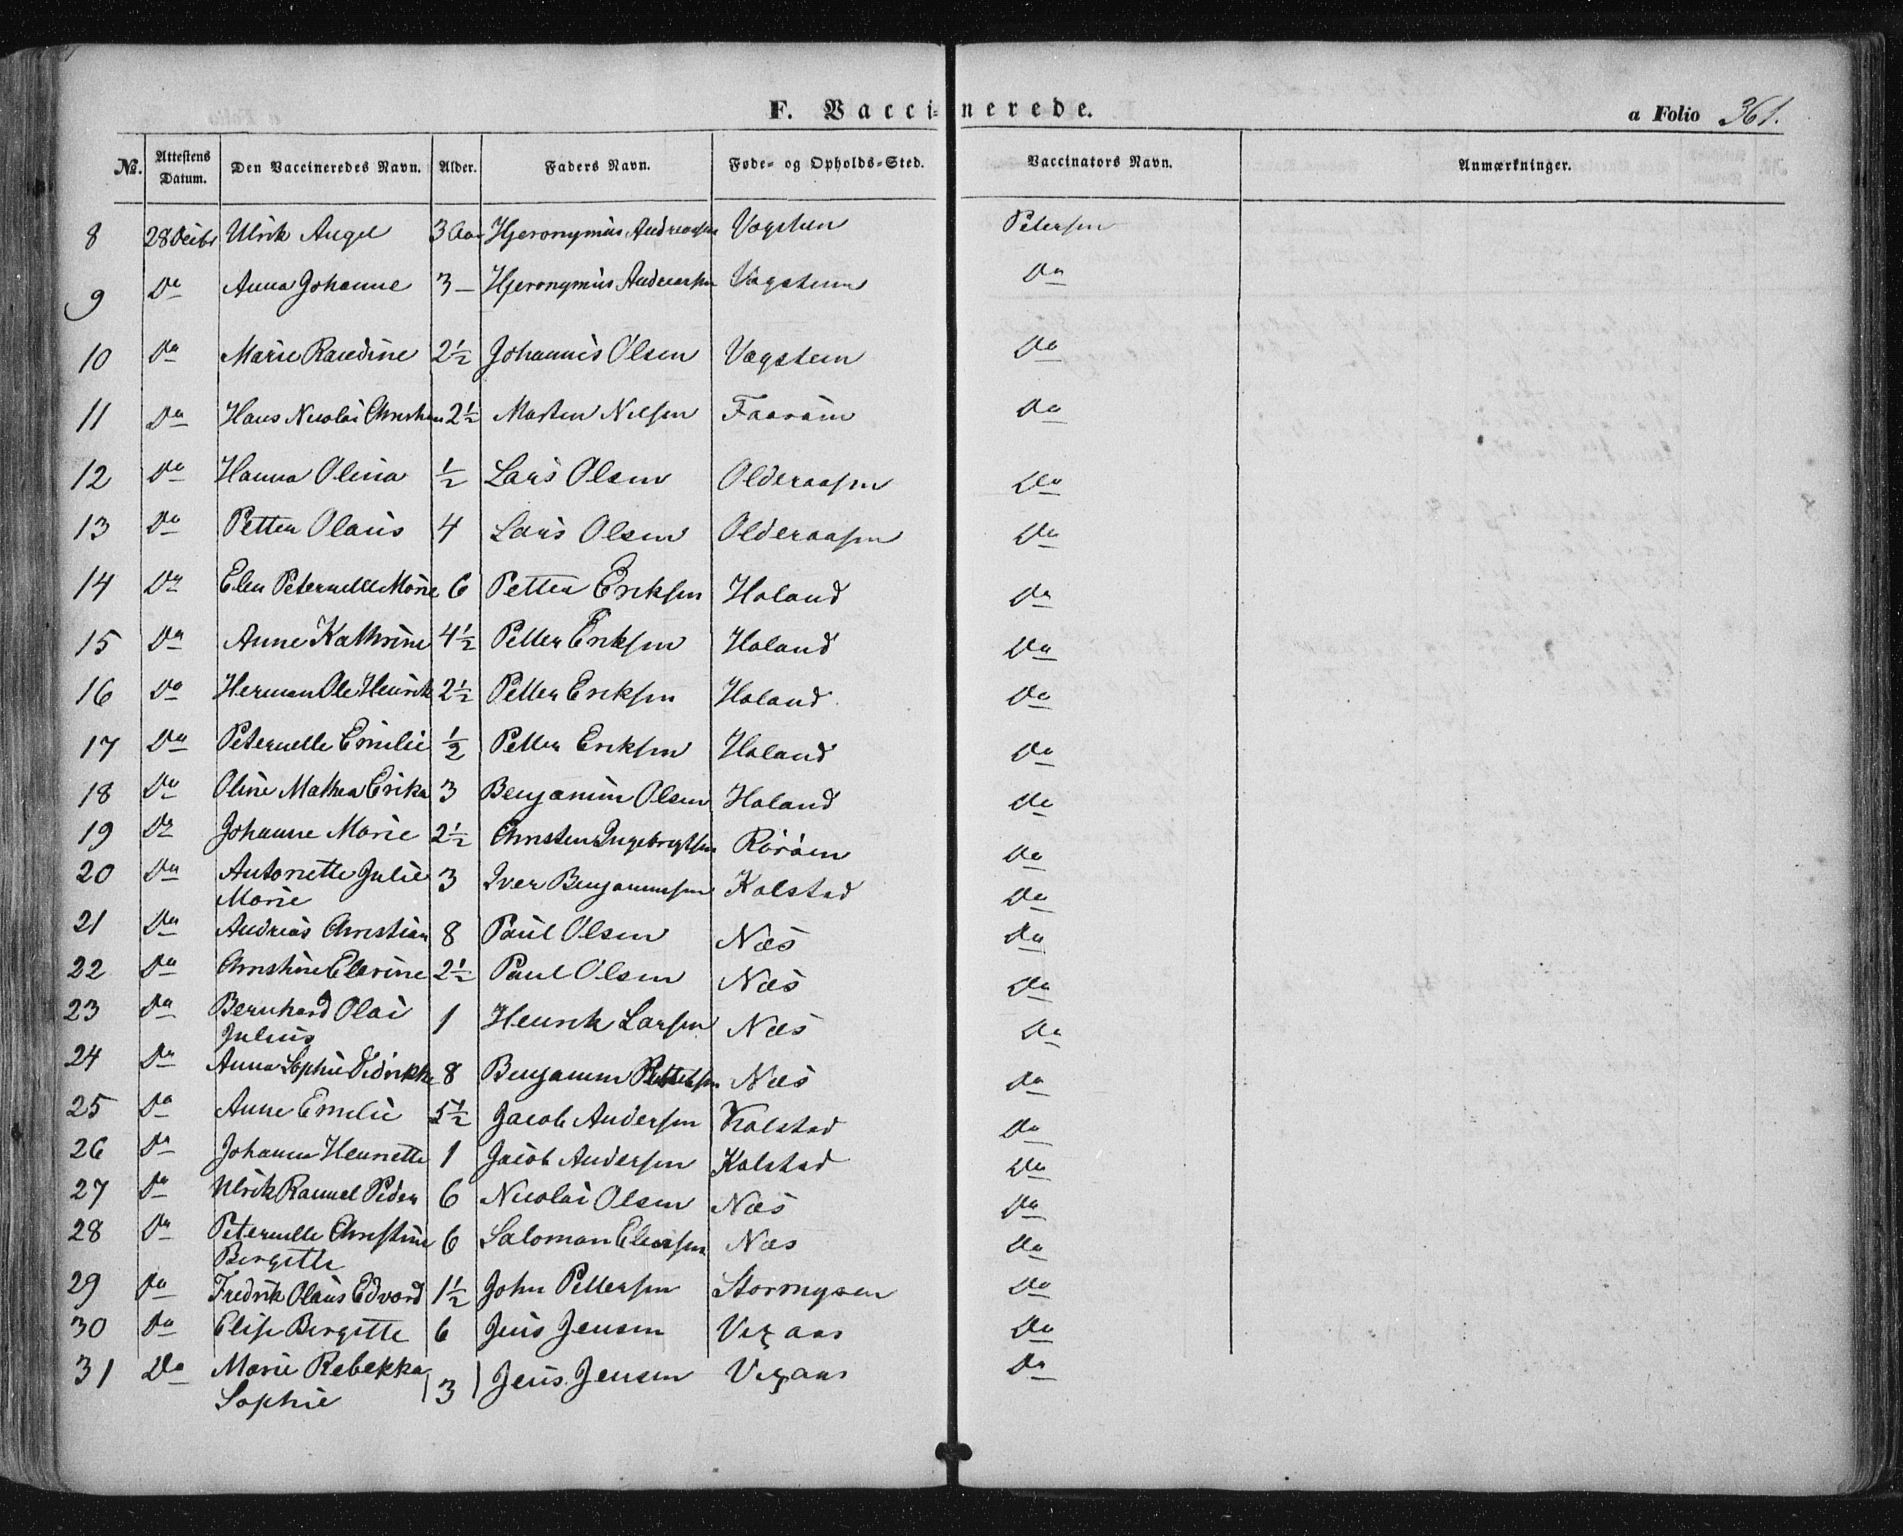 F. Vaccinerede.
a Folio 361.
No. Attestens Datum. Den Vaccineredes Navn. Alder. Faders Navn. Føde- og Opholds-Sted. Vaccinators Navn. Anmærkninger.
8 28 Ulrik Angel 3 Aar Hjeronymus Andreassen Vegsteen Petersen
9 Do Anna Johanne 3 — Hjeronymus Andreassen Vegsteen Do
10 Do Marie Randine 2½ Johannes Olsen Vegsteen Do
11 Do Hans Nicolai Christian 2½ Morten Nilsen Faarøin Do
12 Do Hanna Olina ½ Lars Olsen Olderaasen Do
13 Do Petter Olaus 4 Lars Olsen Olderaasen Do
14 Do Elen Peternelle Marie 6 Petter Eriksen Holand Do
15 Do Anne Kathrine 4½ Petter Eriksen Holand Do
16 Do Herman Ole Henrik 2½ Petter Eriksen Holand Do
17 Do Peternelle Emilie ½ Petter Eriksen Holand Do
18 Do Oline Mathea Erika 3 Benjamin Olsen Holand Do
19 Do Johanne Marie 2½ Christen Ingebrigtsen Rørøen Do
20 Do Antonette Julie 3 Iver Benjaminsen Kolstad Do
Marie
21 Do Andreas Christian 8 Paul Olsen Næs Do
22 Do Christine Elevine 2½ Paul Olsen Næs Do
23 Do Bernhard Olai 1 Henrik Larsen Næs Do
Julius
24 Do Anna Sophie Didrikke 8 Benjamin Næs Do
25 Do Anne Emelie 5½ Jacob Andersen Kolstad Do
26 Do Johanna Henriette 1 Jacob Andersen Kolstad Do
27 Do Ulrik Peder 6 Nicolai Olsen Næs Do
28 Do Peternelle Christine 6 Salomon Eliassen Næs Do
Birgitte
29 Do Fredrik Olaus Edvard 1½ John Pettersen Stormyren Do
30 Do Elise Birgitte 6 Jens Jensen Do
31 Do Marie Rebekka 3 Jens Jensen Do
Sophie